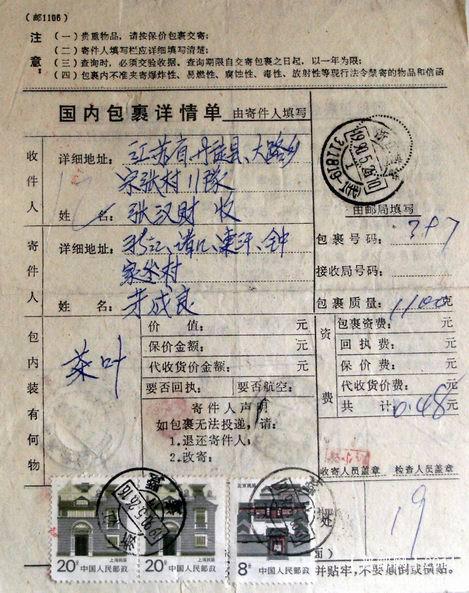 (邮1106)
注意：
(一) 贵重物品，请按保价包裹交寄；
(二) 寄件人填写栏应详细填写清楚；
(三) 查询时，必须交验收据。查询期限自交寄包裹之日起，以一年为限；
(四) 包裹内不准夹寄爆炸性、易燃性、腐蚀性、毒性、放射性等现行法令禁寄的物品和信函
国内包裹详情单 由寄件人填写
收件人
详细地址：江苏省丹阳县、大路乡
家张村11队
姓 名：张汉财 收
寄件人
详细地址：
家 村
姓 名： 成良
由邮局填写
包裹号码：387
接收局号码：
包裹质量： 克
包内装有何物
茶叶
价 值： 元
保价金额： 元
代收货价金额： 元
要否回执： 要否航空：
寄件人声明
如包裹无法投递，请：
1.退还寄件人；
2.改寄：
资费
包裹资费： 元
回执费： 元
保价费： 元
代收货价费： 元
共 计 0.48 元
收寄人员盖章 检查人员盖章
19
处
上海民居
20分 中国人民邮政
上海民居
20分 中国人民邮政
北京民居
8分 中国人民邮政
并贴牢，不要颠倒或横贴。